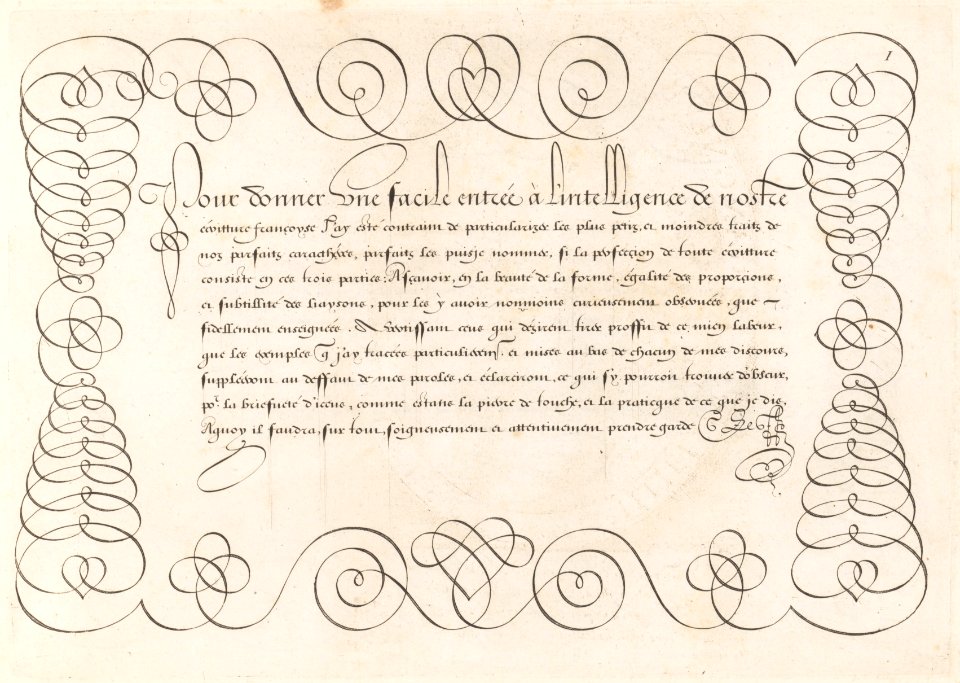 1
Pour donner vne facile entrée à l'intelligence de nostre
écriture françoyse J'ay esté contraint de particularizer les plus petiz, et moindres traitz de
noz parfaitz caracthéres, parfaitz les puisje nommer, si la perfecçion de toute écriture
consiste en ces trois parties: Asçauoir, en la beauté de la forme, égalité des proporçions,
et subtillité des liaysons, pour les y auoir nonmoins curieusement obseruées, que
fidellement enseignées. Auertissant ceus qui dezirent tirer proffit de ce mien labeur,
que les exemples q j'ay tracées particulierem.t et mises au bas de chacun de mes discours,
suppléeront au deffaut de mes paroles, et éclarciront, ce qui s'y pourroit trouuer d'obscur,
po.r la briefueté d'iceus, comme estants la pierre de touche, et la praticque de ce que je dis,
Aquoy il faudra, sur tout, soigneusement et attentiuement prendre garde